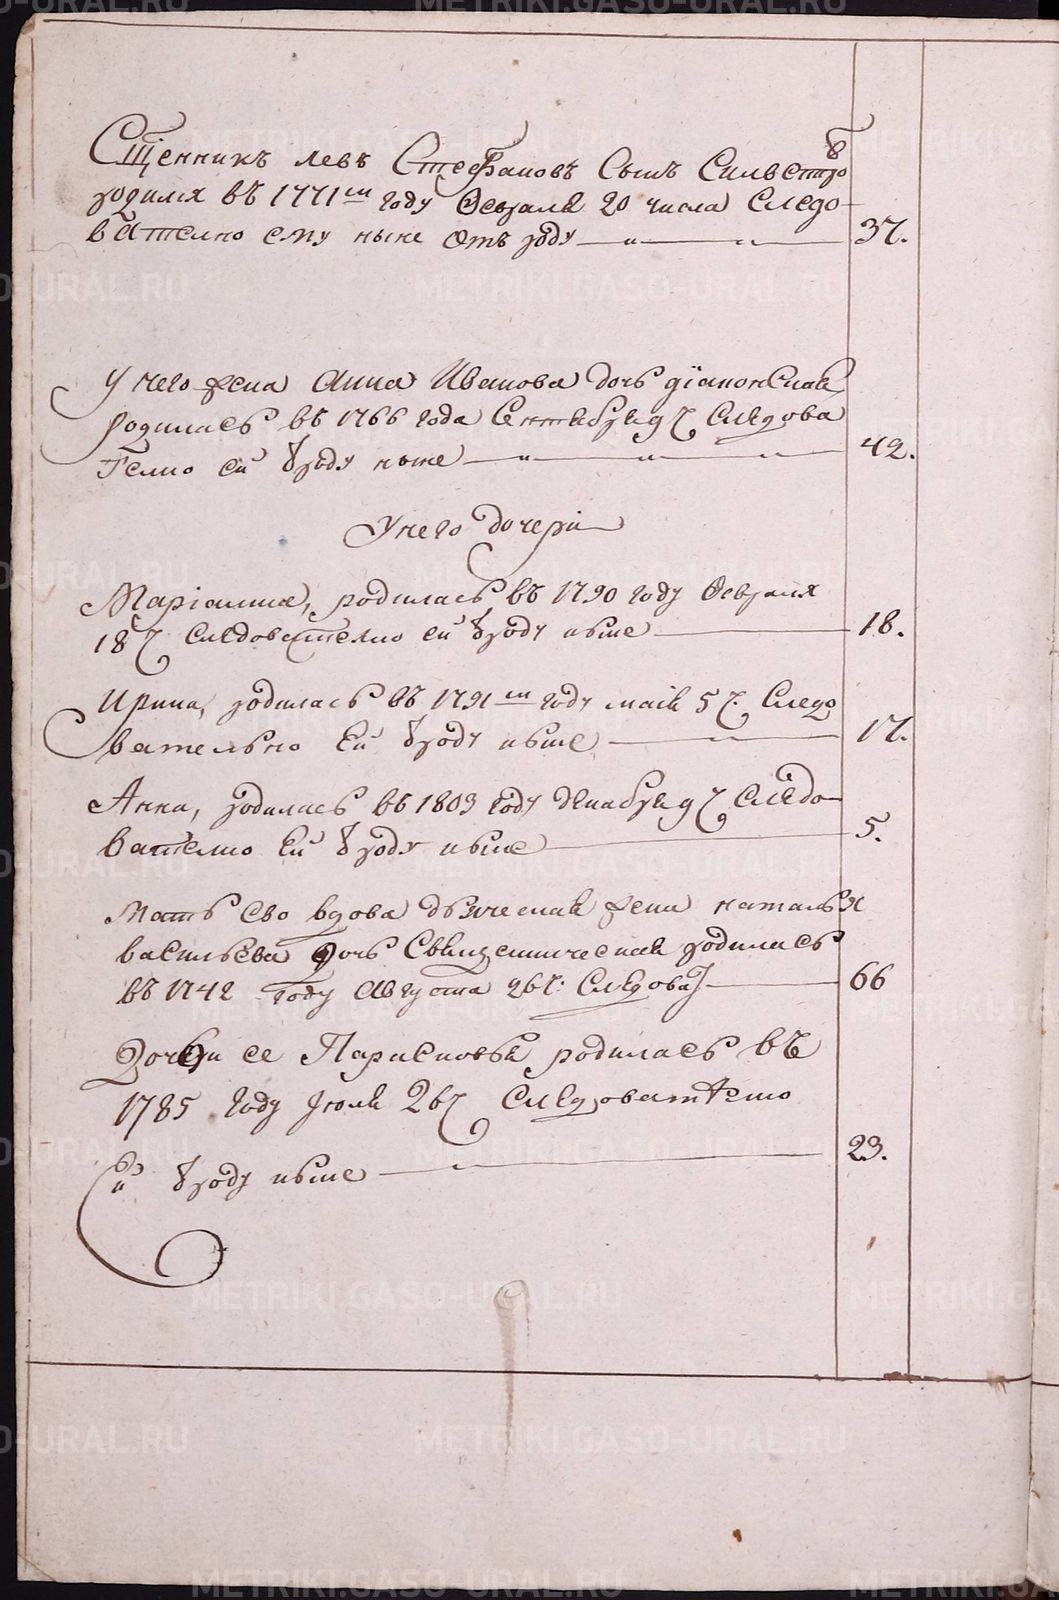 Сщенникъ левъ Стефановъ Сынъ Сильвестровъ
родился въ 1771м году Февраля 20 числа Следо
вателно ему ныне отъ роду 37.
У него жена Анна Иванова дочь діаконская
родилась въ 1766 года Сентября 9 ч Следова
телно ей ѿ роду ныне 42.
У него дочери
Маріамна, родилась въ 1790 году Февраля
18 ч Следователно ей ѿ роду ныне 18.
Ирина, родилась въ 1791м году маія 5 ч. Следо
вательно Ей ѿ роду ныне 17.
Анна, родилась въ 1803 году декабря 9 ч Следо
вателно Ей ѿ роду ныне 5.
Мать Ево вдова жена наталья
васильева дочь Священническая родилась
въ 1742 году Августа 26 ч. Следоват 66
Дочь ее Парасковья родилась въ
1785 году Іюля 26 ч Следователно
Ей ѿ роду ныне 23.
METRIKI.GASO-URAL.RU